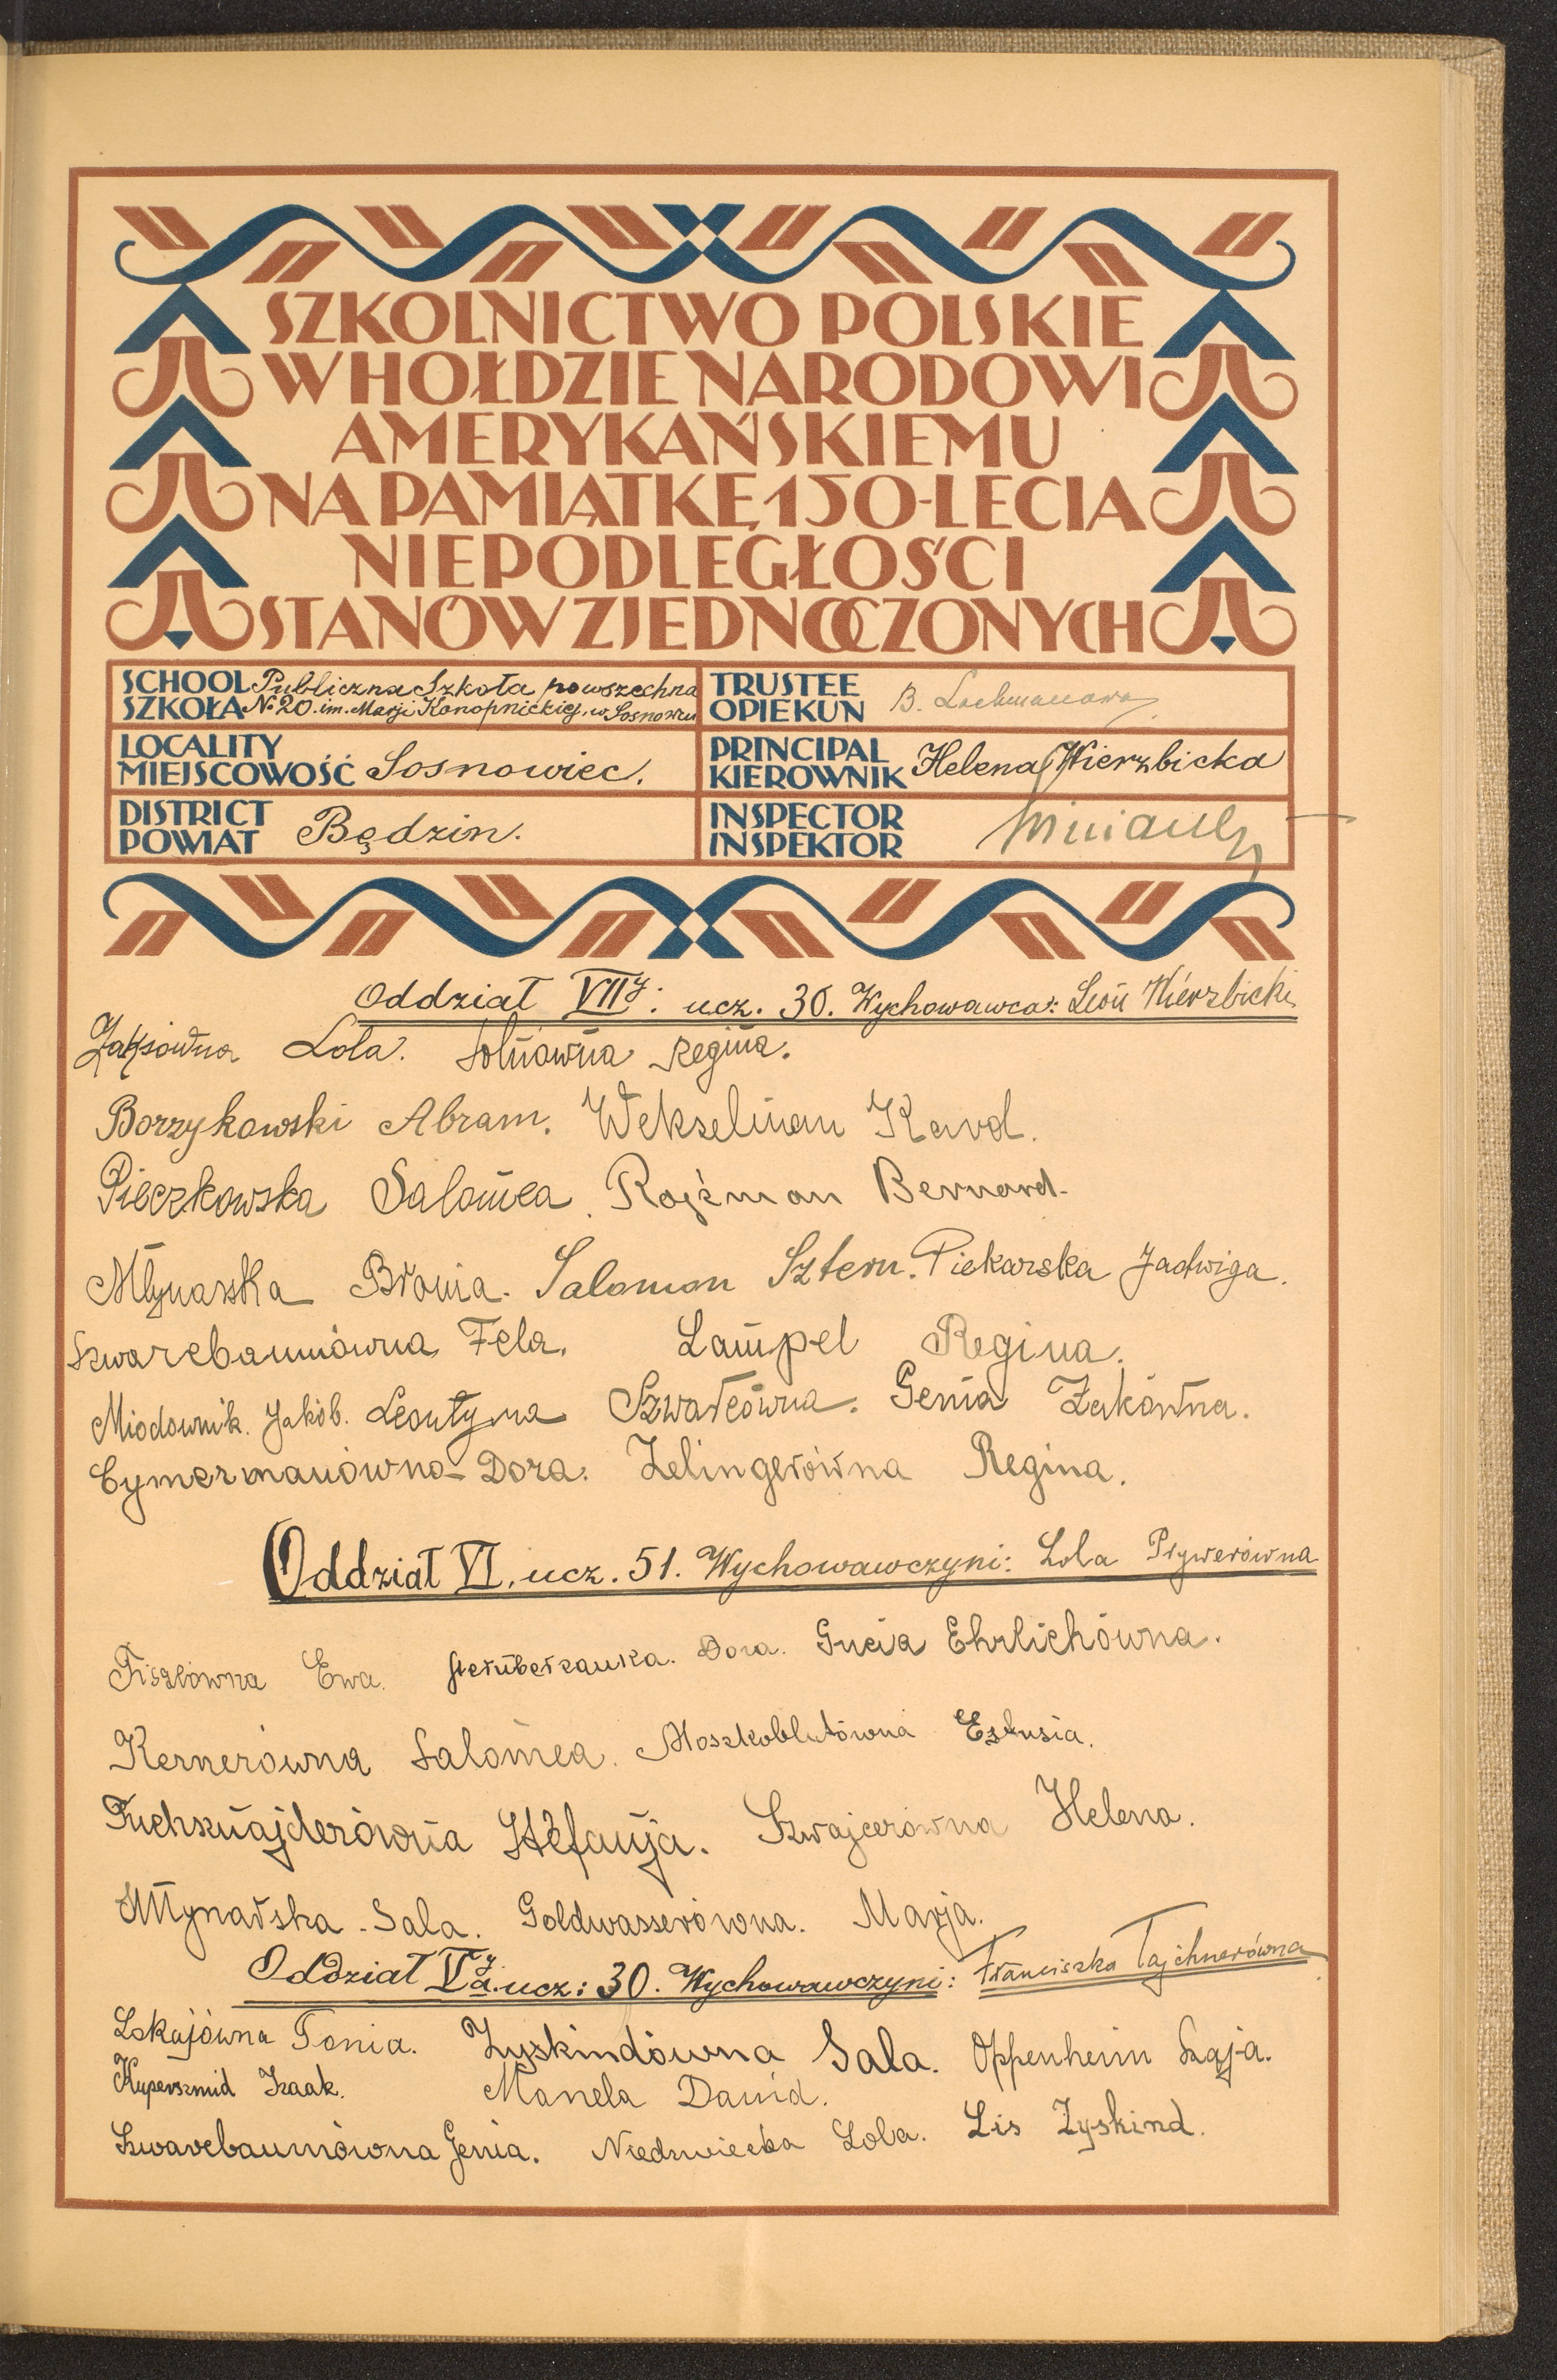 SZKOLNICTWO POLSKIE
W HOŁDZIE NARODOWI
AMERYKAŃSKIEMU
NA PAMIĄTKĘ 150-LECIA
NIEPODLEGŁOŚCI
STANÓW ZJEDNOCZONYCH
SCHOOL Publiczna Szkoła powszechna
SZKOŁA № 20. im. Marji Konopnickiej, w Sosnowcu
TRUSTEE
OPIEKUN B. Lachmanowa
LOCALITY
MIEJSCOWOŚĆ Sosnowiec.
PRINCIPAL
KIEROWNIK Helena Wierzbicka
DISTRICT
POWIAT Będzin.
INSPECTOR
INSPEKTOR
Oddział VIIy: ucz. 30. Wychowawca: Leon Wierzbicki
Lola. Regina.
Borzykowski Abram. Wekselman Karol.
Pieczkowska Salomea. Rojzman Bernard.
Młynarska Bronia. Salomon Sztern. Piekarska Jadwiga.
Szwarcbaumówna Fela. Lampel Regina.
Miodownik. Jakób. Leontyna Szwarcówna. Genia Żakówna.
Cymermanówna Dora. Zelingerówna Regina.
Oddział VI. ucz. 51. Wychowawczyni: Lola Prywerówna
Fiszlówna Ewa. Dora. Gucia Ehrlichówna.
Kernerówna Salomea. Moszkoblutówna Estusia.
Fuchsznajderówna Stefanja. Szwajcerówna Helena.
Młynarska Sala. Goldwasserówna. Marja.
Oddział Vya. ucz: 30. Wychowawczyni: Franciszka Tajchnerówna
Lokajówna Tonia. Zyskindówna Sala. Oppenheim Szaja.
Kuperszmid Izaak. Manela Dawid.
Szwarcbaumówna Genia. Niedzwiecka Lola. Lis Zyskind.